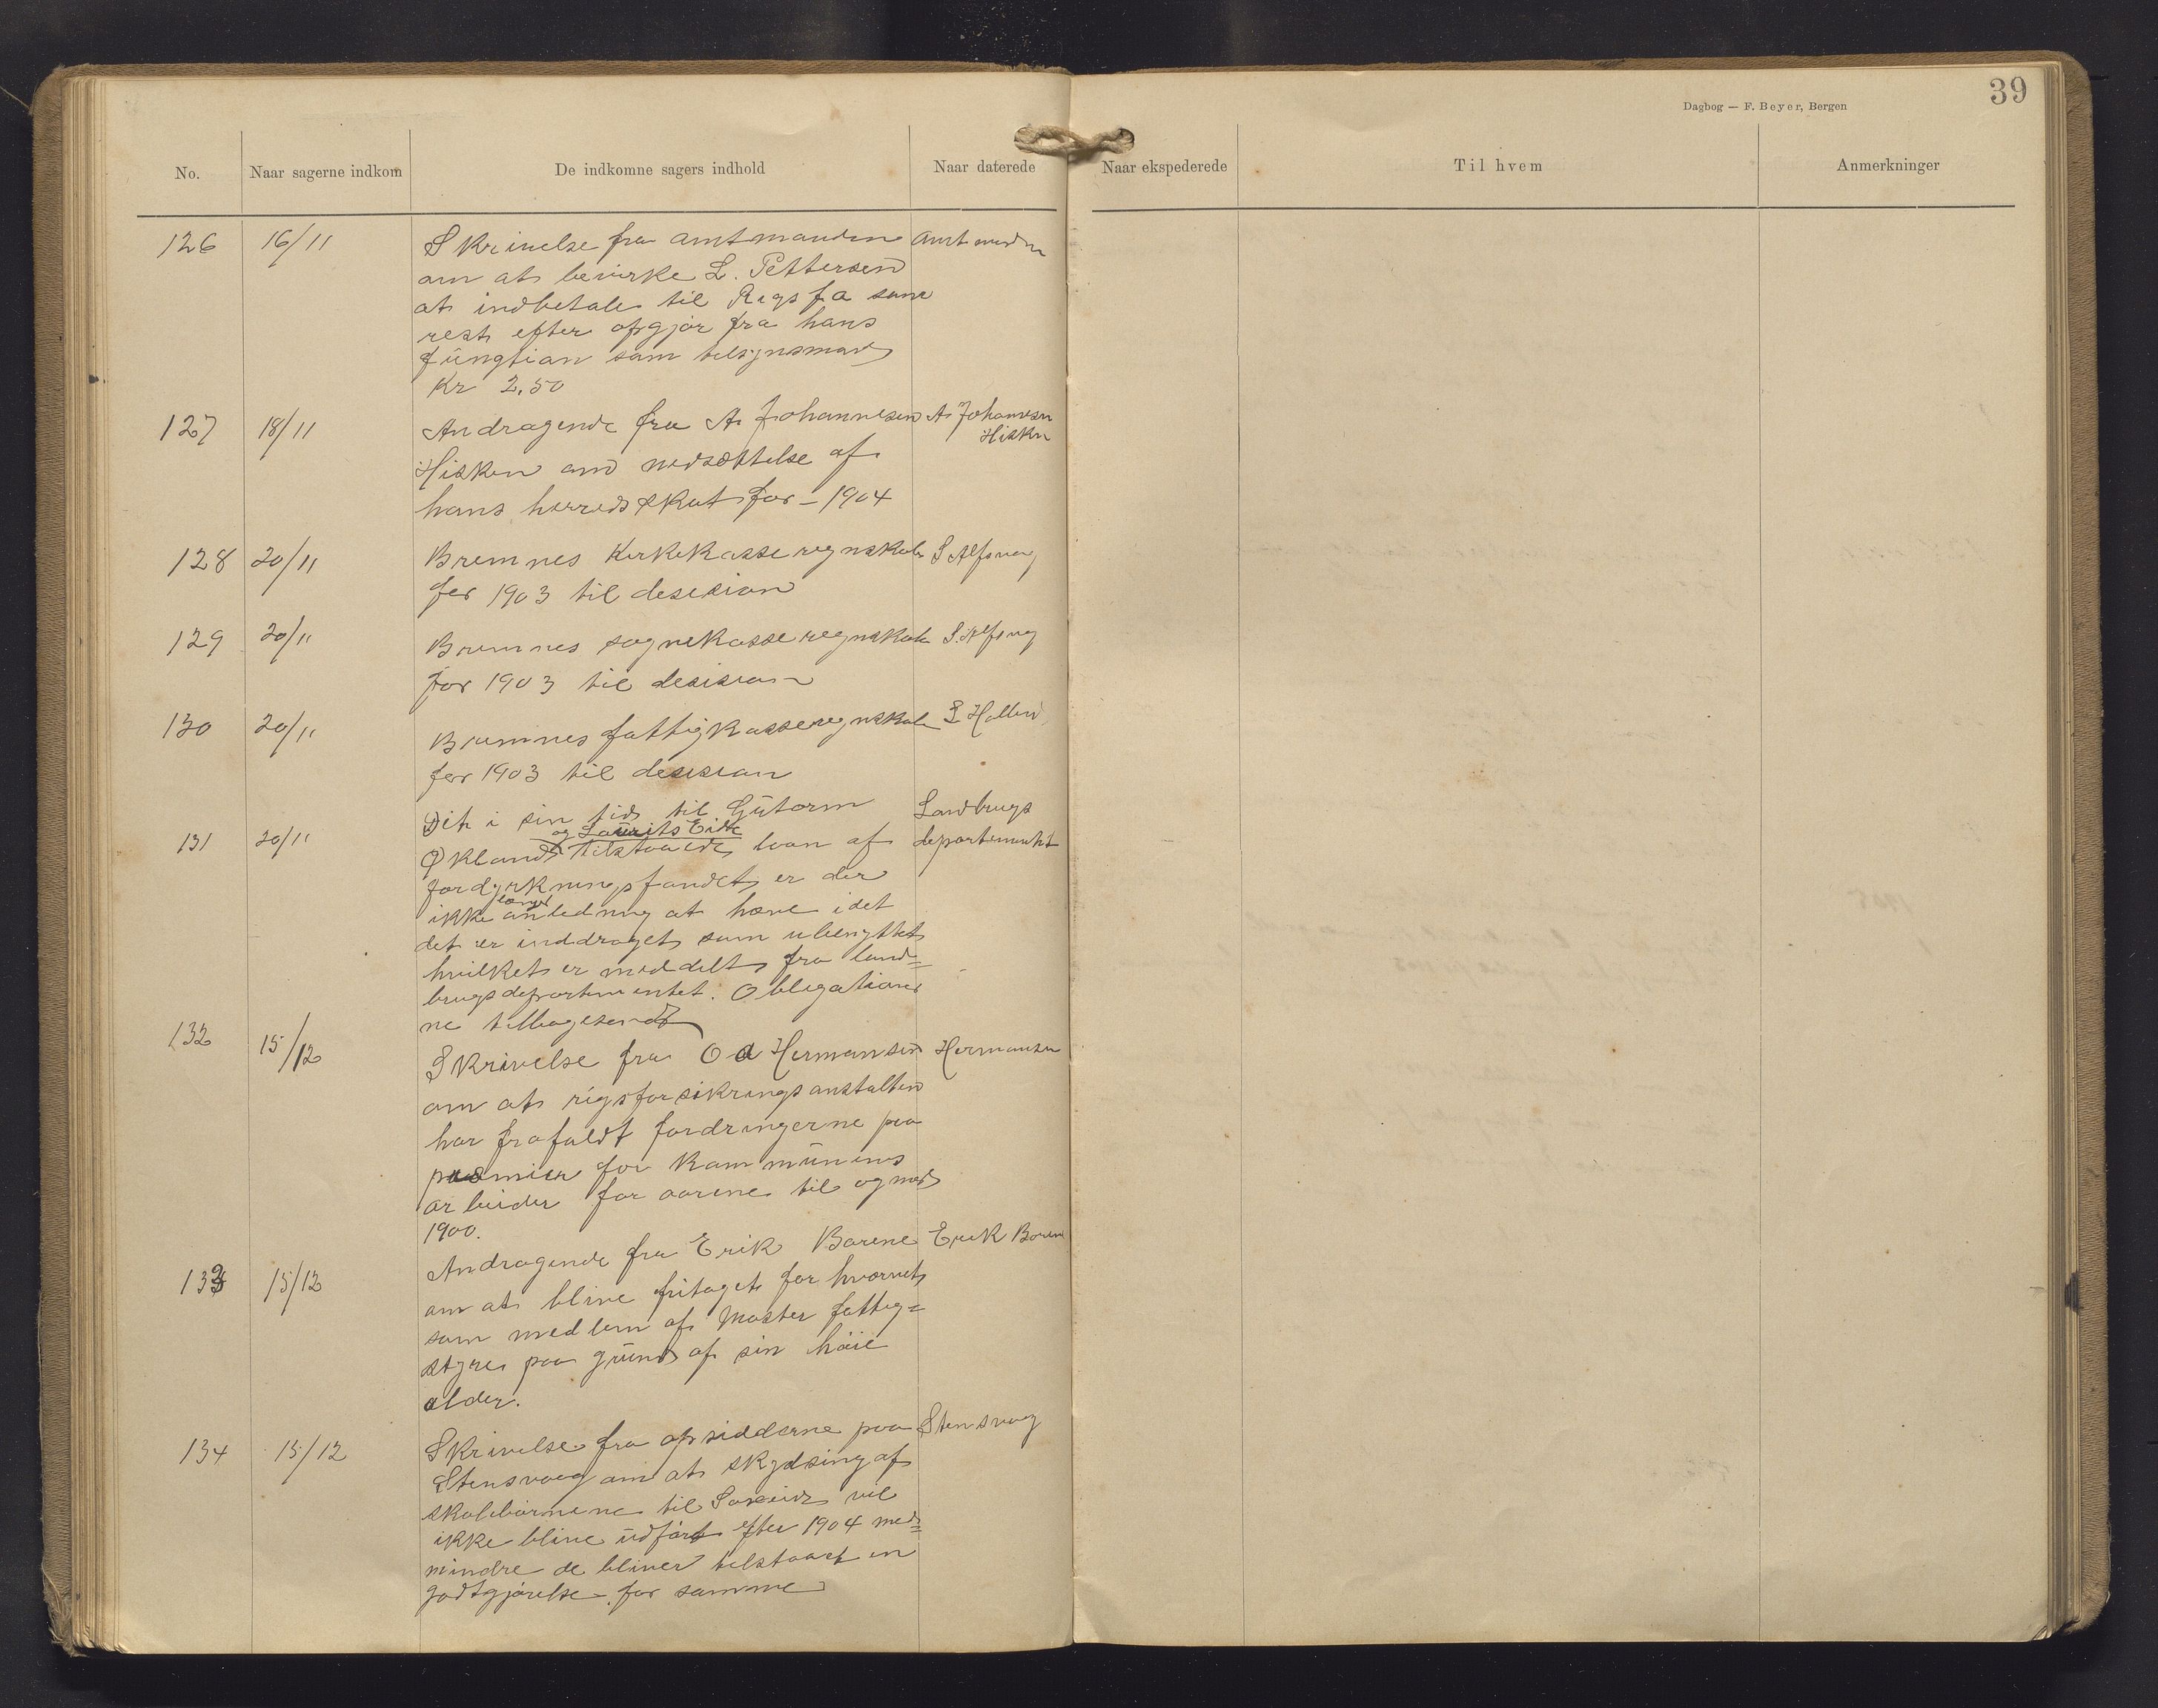 39
Dagbog — F. Beyer, Bergen
No. Naar sagerne indkom De indkomne sagers indhold Naar daterede Naar ekspederede Til hvem Anmerkninger
126 16/11 Skrivelse fra amtmanden Amtmanden
om at bevirke L. Pettersen
at indbetale til Rigsfa som
rest efter opgjør fra hans
fungtion som tilsynsmand
Kr 2,50
127 18/11 Andragende fra A Johannesen A Johannesen
Hisken
Hisken om nedsættelse af
hans herredskat for 1904
128 20/11 Bremnes Kirkekasseregnskab S Alfsvaag
for 1903 til desision
129 20/11 Bremnes sognekasseregnskab S. Alfsvaag
for 1903 til desision
130 20/11 Bremnes fattigkasseregnskab
for 1903 til desision
131 20/11 Det i sin tid til Gutorm Landbrugs
og Laurits Eide
Økland tilstaaede laan af departementet
fordyrkningsfondet er der
længer
ikke anledning at hæve idet
det er inddraget som ubenyttet
hvilket er meddelt fra land=
brugsdepartementet. Obligationer
ne tilbagesendt
132 15/12 Skrivelse fra O a Hermansen Hermansen
om at rigsforsikringsanstalten
har frafaldt fordringerne paa
præmier for kommunens
arbeider for aarene til og med
1900.
133 15/12 Andragende fra Erik Barene Erik Barene
om at blive fritaget for hvervet
som medlem af Moster fattig=
styre paa grund af sin høie
alder.
134 15/12 Skrivelse fra opsidderne paa Stensvaag
Stensvaag om at skydsing af
skolebørnene til Søreide vil
ikke blive udført efter 1904 med=
mindre de bliver tilstaaet en
godtgjørelse for samme